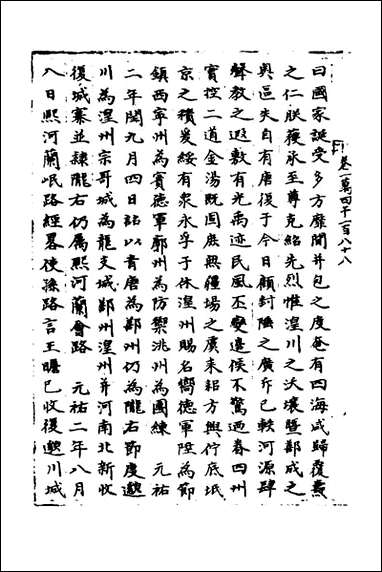 卷一萬四千一百八十八
曰國家誕受多方靡間幷包之度奄有四海咸歸覆燾
之仁朕獲承至尊克紹先烈惟湟川之沃壤暨鄯戎之
奥區失自有唐復于今日顧封陲之廣斥已軼河源肆
聲教之遐敷有光禹迹民風丕變邉候不驚逈眷四州
實控二道金湯既固庶無疆場之虞來紹方輿佇底坻
京之積爰綏有衆永孚于休湟州賜名嚮德軍陞為節
鎮西寧州為賓德軍廓州為防禦洮州為團練 元祐
二年閏九月四日詔以青唐為鄯州仍為隴右節度邈
川為湟州宗哥城為龍支城鄯州湟州并河南北新收
復城寨並隸隴右仍屬熙河蘭會路 元祐二年八月
八日熙河蘭岷路經畧使孫路言王瞻已收復邈川城